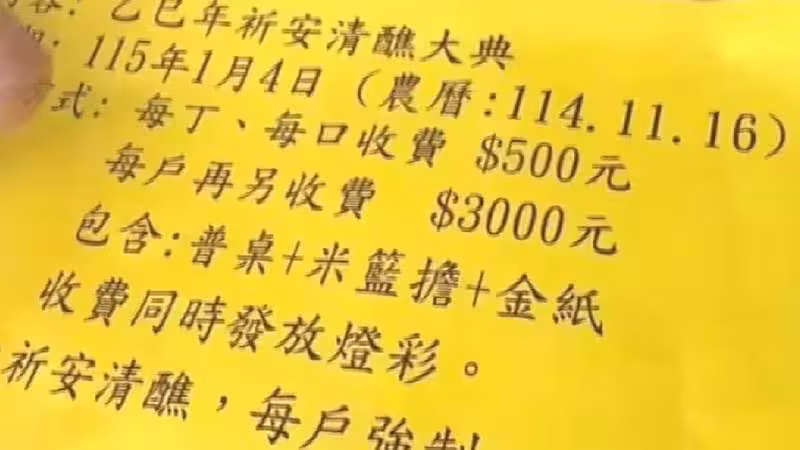 容: 乙巳年祈安清醮大典
115年1月4日 (農曆:114.11.16)
方式: 每丁、每口收費 $500元
每戶再另收費 $3000元
包含:普桌+米籃擔+金紙
收費同時發放燈彩。
祈安清醮,每戶強制